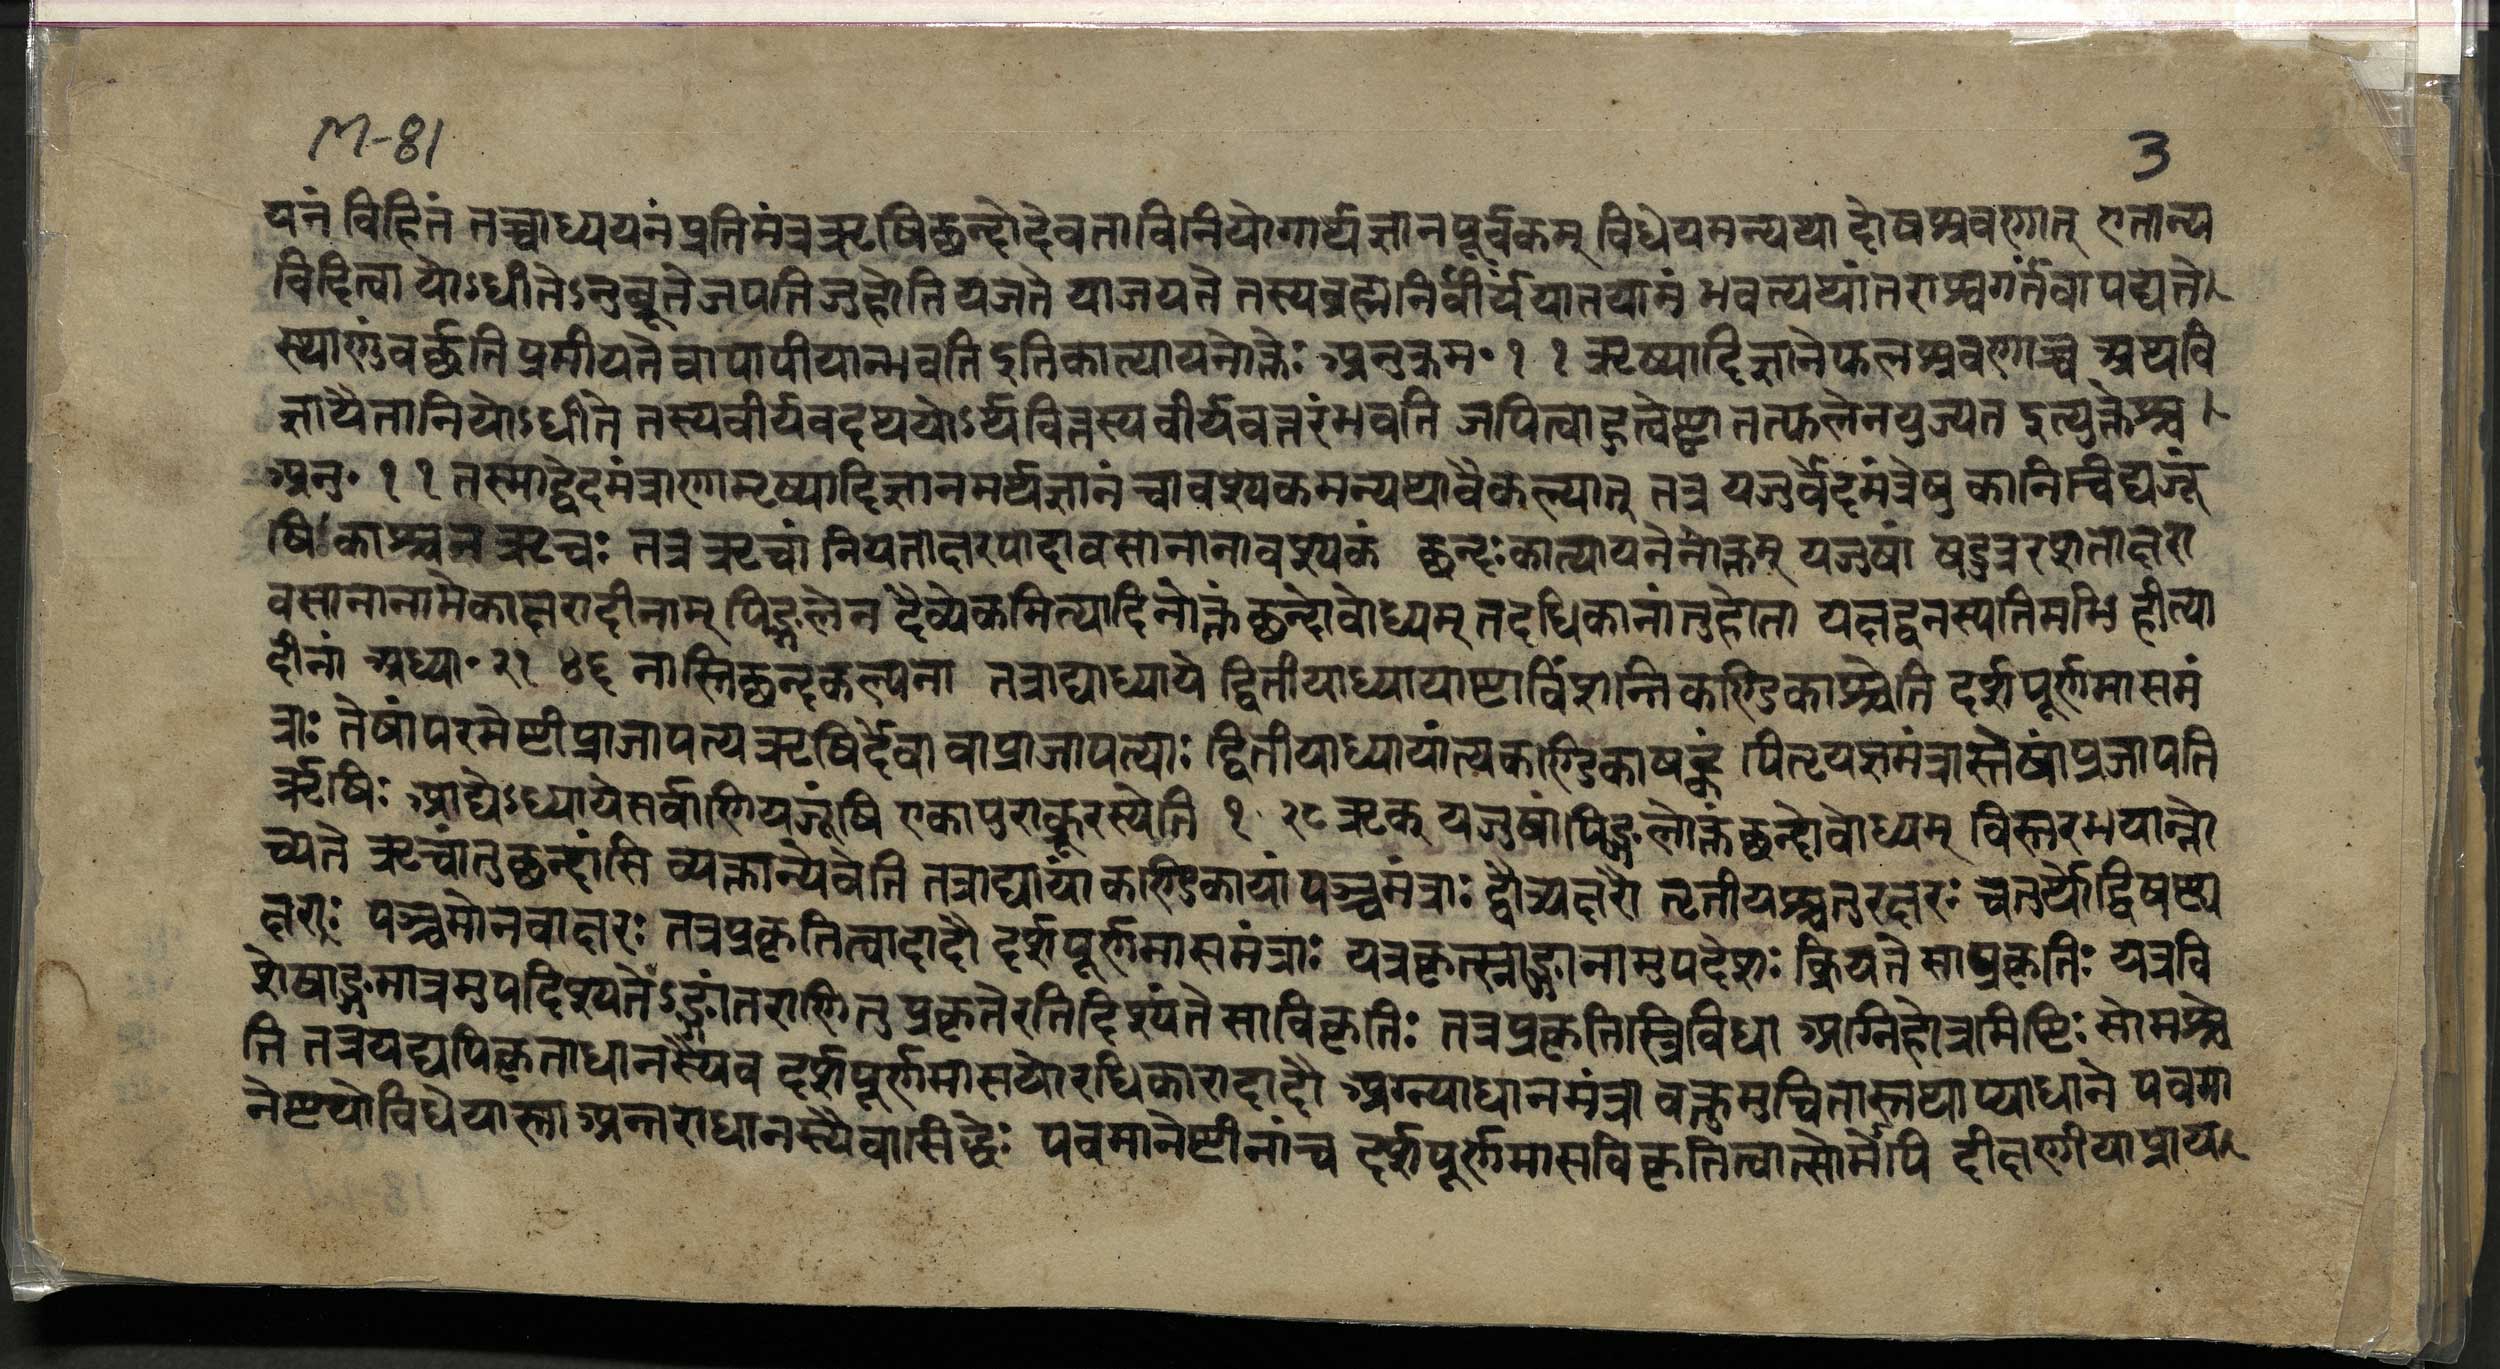 M-81
3
यनं विहितं तच्चाध्ययनं प्रतिमंत्रऋषिछन्दोदेवताविनियोगार्थज्ञानपूर्वकम् विधेयमन्यथा दोषश्रवणात् एतान्य
विदित्वा योऽधीतेऽनुब्रूते जपति जुहोति यजते याजयते तस्य ब्रह्म निर्वीर्यं यातयामं भवत्यथांतराश्वगर्तंवापद्यते
स्थाणुंवर्छति प्रमीयते वा पापीयान्भवति इतिकात्यायनोक्तेः अनुक्रम॰ १ १ ऋष्यादिज्ञानेफलश्रवणाच्च अथवि
ज्ञायैतानियोऽधीते तस्यवीर्यवदथयोऽर्थवित्तस्य वीर्यवत्तरंभवति जपित्वाहुत्वेष्ट्वा तत्फलेनयुज्यत इत्युक्तेश्च
अनु॰ १ १ तस्माद्वेदमंत्राणामृष्यादिज्ञानमर्थज्ञानं चावश्यकमन्यथावैकल्यात् तत्र यजुर्वेदमंत्रेषु कानिचिद्यजूं
षि काश्चन ऋचः तत्र ऋचां नियताक्षरपादावसानानावश्यकं छन्दःकात्यायनेनोक्तम् यजुषां षडुत्तरशताक्षरा
वसानानामेकाक्षरादीनाम् पिङ्गलेन दैव्येकमित्यादिनोक्तंछन्दोवोध्यम् तदधिकानांतुहोता यक्षद्वनस्पतिमभि हीत्या
दीनां अध्या॰ २१ ४६ नास्तिछन्दकल्पना तत्राद्याध्याये द्वितीयाध्यायाष्टाविंशन्तिकण्डिकाश्चेति दर्शपूर्णमासमं
त्राः तेषांपरमेष्टीप्राजापत्यऋषिर्देवावाप्राजापत्याः द्वितीयाध्यायांत्यकण्डिकाषट्कं पितृयज्ञमंत्रास्तेषांप्रजापति
र्ऋषिः आद्येऽध्यायेसर्वाणियजूंषि एकापुराक्रूरस्येति १ २८ ऋक् यजुषांपिङ्गलोक्तंछन्दोवोध्यम् विस्तरभयान्नो
च्यते ऋचांतुछन्दांसि व्यक्तान्येवेति तत्राद्यायां कण्डिकायां पञ्चमंत्राः द्वौत्र्यक्षरौ तृतीयश्चतुरक्षरः चतुर्थोद्विषष्ट्य
क्षरः पञ्चमोनवाक्षरः तत्रप्रकृतित्वादादौ दर्शपूर्णमासमंत्राः यत्रकृत्स्नाङ्गानामुपदेशः क्रियते साप्रकृतिः यत्रवि
शेषाङ्गमात्रमुपदिश्यतेऽङ्गांतराणितु प्रकृतेरतिदिश्यंते साविकृतिः तत्रप्रकृतिस्त्रिविधा अग्निहोत्रमिष्टिः सोमश्चे
ति तत्रयद्यपिकृताधानस्यैव दर्शपूर्णमासयोरधिकारादादौ अग्न्याधानमंत्रा वक्तुमुचितास्तथाप्याधाने पवमा
नेष्टयोविधेयास्ताअन्तराधानस्यैवासिद्धेः पवमानेष्टीनांच दर्शपूर्णमासविकृतित्वात्सोमेपि दीक्षणीयाप्राय